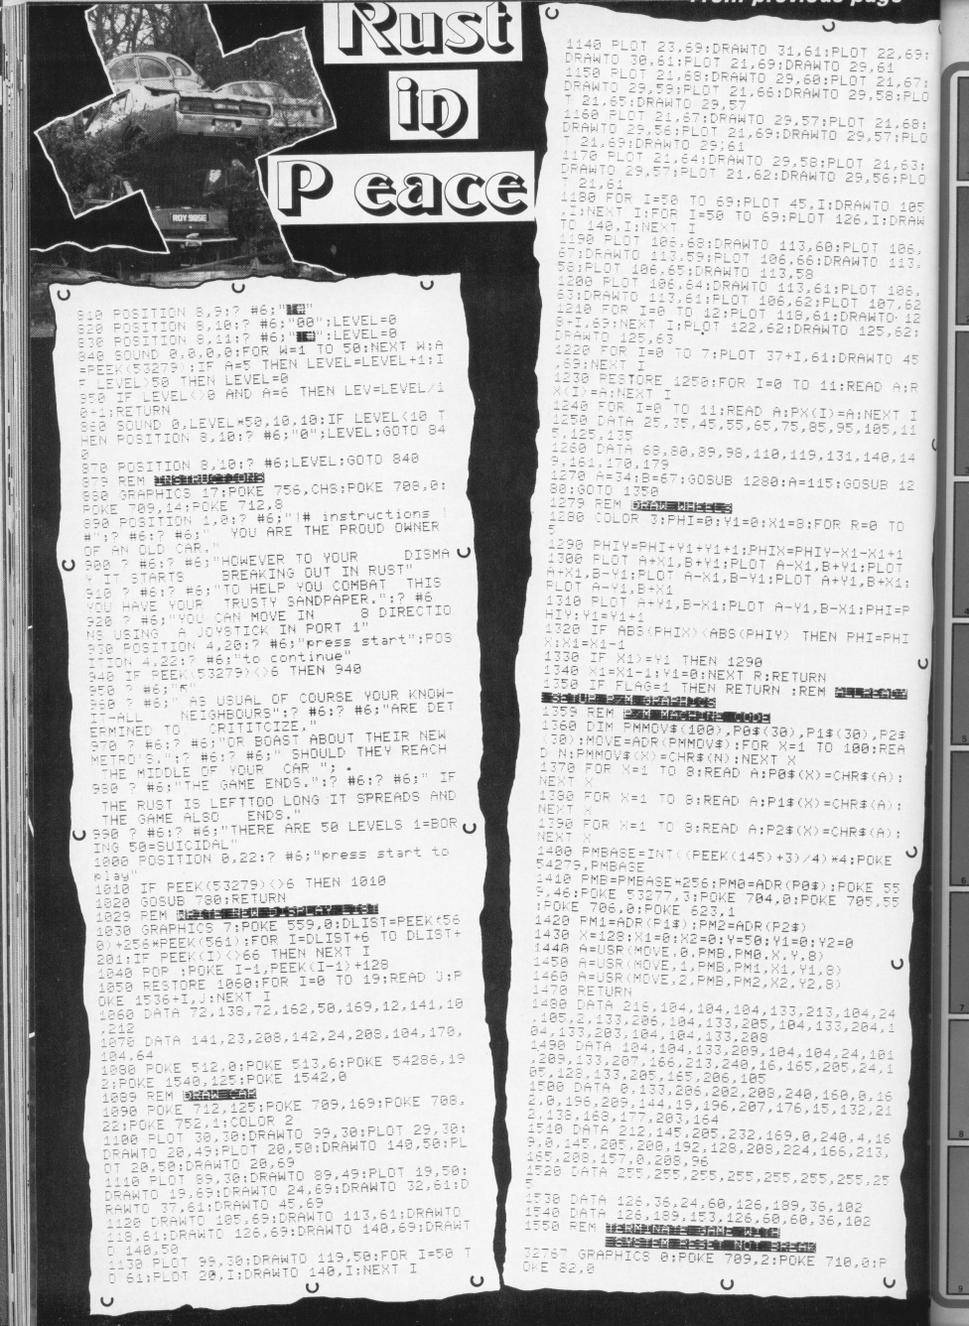 From previous page
Rust
in
Peace
ROY 985E
810 POSITION 8,9:? #6;"
820 POSITION 8,10:? #6;"00":LEVEL=0
830 POSITION 8,11:? #6;" :LEVEL=0
840 SOUND 0,0,0,0:FOR W=1 TO 50:NEXT W:A
=PEEK(53279):IF A=5 THEN LEVEL=LEVEL+1:I
F LEVEL>50 THEN LEVEL=0
850 IF LEVEL<>0 AND A=6 THEN LEV=LEVEL/1
0+1:RETURN
860 SOUND 0,LEVEL*50,10,10:IF LEVEL<10 T
HEN POSITION 8,10:? #6;"0";LEVEL:GOTO 84
0
870 POSITION 8,10:? #6;LEVEL:GOTO 840
879 REM INSTRUCTIONS
880 GRAPHICS 17:POKE 756,CHS:POKE 708,0:
POKE 709,14:POKE 712,8
890 POSITION 1,0:? #6;"!# instructions !
#":? #6:? #6;"   YOU ARE THE PROUD OWNER
OF AN OLD CAR."
900 ? #6:? #6;"HOWEVER TO YOUR     DISMA
Y IT STARTS    BREAKING OUT IN RUST"
910 ? #6:? #6;"TO HELP YOU COMBAT  THIS
YOU HAVE YOUR  TRUSTY SANDPAPER.":? #6
920 ? #6;"YOU CAN MOVE IN     8 DIRECTIO
NS USING  A JOYSTICK IN PORT 1"
930 POSITION 4,20:? #6;"press start":POS
ITION 4,22:? #6;"to continue"
940 IF PEEK(53279)<>6 THEN 940
950 ? #6;"
960 ? #6;" AS USUAL OF COURSE YOUR KNOW-
IT-ALL    NEIGHBOURS":? #6:? #6;"ARE DET
ERMINED TO    CRITITCIZE,"
970 ? #6:? #6;"OR BOAST ABOUT THEIR NEW
METRO'S.":? #6:? #6;" SHOULD THEY REACH
THE MIDDLE OF YOUR  CAR ";
980 ? #6;"THE GAME ENDS.":? #6:? #6;" IF
THE RUST IS LEFTTOO LONG IT SPREADS AND
THE GAME ALSO   ENDS."
990 ? #6:? #6;"THERE ARE 50 LEVELS 1=BOR
ING 50=SUICIDAL"
1000 POSITION 0,22:? #6;"press start to
play"
1010 IF PEEK(53279)<>6 THEN 1010
1020 GOSUB 780:RETURN
1029 REM WRITE NEW DISPLAY LIST
1030 GRAPHICS 7:POKE 559,0:DLIST=PEEK(56
0)+256*PEEK(561):FOR I=DLIST+6 TO DLIST+
201:IF PEEK(I)<>66 THEN NEXT I
1040 POP :POKE I-1,PEEK(I-1)+128
1050 RESTORE 1060:FOR I=0 TO 19:READ J:P
OKE 1536+I,J:NEXT I
1060 DATA 72,138,72,162,50,169,12,141,10
,212
1070 DATA 141,23,208,142,24,208,104,170,
104,64
1080 POKE 512,0:POKE 513,6:POKE 54286,19
2:POKE 1540,125:POKE 1542,0
1089 REM DRAW CAR
1090 POKE 712,125:POKE 709,169:POKE 708,
22:POKE 752,1:COLOR 2
1100 PLOT 30,30:DRAWTO 99,30:PLOT 29,30:
DRAWTO 20,49:PLOT 20,50:DRAWTO 140,50:PL
OT 20,50:DRAWTO 20,69
1110 PLOT 89,30:DRAWTO 89,49:PLOT 19,50:
DRAWTO 19,69:DRAWTO 24,69:DRAWTO 32,61:D
RAWTO 37,61:DRAWTO 45,69
1120 DRAWTO 105,69:DRAWTO 113,61:DRAWTO
118,61:DRAWTO 126,69:DRAWTO 140,69:DRAWT
O 140,50
1130 PLOT 99,30:DRAWTO 119,50:FOR I=50 T
O 61:PLOT 20,I:DRAWTO 140,I:NEXT I
1140 PLOT 23,69:DRAWTO 31,61:PLOT 22,69:
DRAWTO 30,61:PLOT 21,69:DRAWTO 29,61
1150 PLOT 21,68:DRAWTO 29,60:PLOT 21,67:
DRAWTO 29,59:PLOT 21,66:DRAWTO 29,58:PLO
T 21,65:DRAWTO 29,57
1160 PLOT 21,67:DRAWTO 29,57:PLOT 21,68:
DRAWTO 29,56:PLOT 21,69:DRAWTO 29,57:PLO
T 21,69:DRAWTO 29,61
1170 PLOT 21,64:DRAWTO 29,58:PLOT 21,63:
DRAWTO 29,57:PLOT 21,62:DRAWTO 29,56:PLO
T 21,61
1180 FOR I=50 TO 69:PLOT 45,I:DRAWTO 105
,I:NEXT I:FOR I=50 TO 69:PLOT 126,I:DRAW
TO 140,I:NEXT I
1190 PLOT 106,68:DRAWTO 113,60:PLOT 106,
67:DRAWTO 113,59:PLOT 106,66:DRAWTO 113,
58:PLOT 106,65:DRAWTO 113,58
1200 PLOT 106,64:DRAWTO 113,61:PLOT 106,
63:DRAWTO 113,61:PLOT 106,62:PLOT 107,62
1210 FOR I=0 TO 12:PLOT 118,61:DRAWTO 12
8+I,69:NEXT I:PLOT 122,62:DRAWTO 125,62:
DRAWTO 125,63
1220 FOR I=0 TO 7:PLOT 37+I,61:DRAWTO 45
,69:NEXT I
1230 RESTORE 1250:FOR I=0 TO 11:READ A:R
X(I)=A:NEXT I
1240 FOR I=0 TO 11:READ A:PX(I)=A:NEXT I
1250 DATA 25,35,45,55,65,75,85,95,105,11
5,125,135
1260 DATA 68,80,89,98,110,119,131,140,14
9,161,170,179
1270 A=34:B=67:GOSUB 1280:A=115:GOSUB 12
80:GOTO 1350
1279 REM DRAW WHEELS
1280 COLOR 3:PHI=0:Y1=0:X1=8:FOR R=0 TO
5
1290 PHIY=PHI+Y1+Y1+1:PHIX=PHIY-X1-X1+1
1300 PLOT A+X1,B+Y1:PLOT A-X1,B+Y1:PLOT
A+X1,B-Y1:PLOT A-X1,B-Y1:PLOT A+Y1,B+X1:
PLOT A-Y1,B+X1
1310 PLOT A+Y1,B-X1:PLOT A-Y1,B-X1:PHI=P
HIY:Y1=Y1+1
1320 IF ABS(PHIX)<ABS(PHIY) THEN PHI=PHI
X:X1=X1-1
1330 IF X1>=Y1 THEN 1290
1340 X1=X1-1:Y1=0:NEXT R:RETURN
1350 IF FLAG=1 THEN RETURN :REM ALLREADY
SETUP P/M GRAPHICS
1359 REM P/M MACHINE CODE
1360 DIM PMMOV$(100),P0$(30),P1$(30),P2$
(30):MOVE=ADR(PMMOV$):FOR X=1 TO 100:REA
D N:PMMOV$(X)=CHR$(N):NEXT X
1370 FOR X=1 TO 8:READ A:P0$(X)=CHR$(A):
NEXT X
1380 FOR X=1 TO 8:READ A:P1$(X)=CHR$(A):
NEXT X
1390 FOR X=1 TO 8:READ A:P2$(X)=CHR$(A):
NEXT X
1400 PMBASE=INT((PEEK(145)+3)/4)*4:POKE
54279,PMBASE
1410 PMB=PMBASE*256:PM0=ADR(P0$):POKE 55
9,46:POKE 53277,3:POKE 704,0:POKE 705,55
:POKE 706,0:POKE 623,1
1420 PM1=ADR(P1$):PM2=ADR(P2$)
1430 X=128:X1=0:X2=0:Y=50:Y1=0:Y2=0
1440 A=USR(MOVE,0,PMB,PM0,X,Y,8)
1450 A=USR(MOVE,1,PMB,PM1,X1,Y1,8)
1460 A=USR(MOVE,2,PMB,PM2,X2,Y2,8)
1470 RETURN
1480 DATA 216,104,104,104,133,213,104,24
,105,2,133,206,104,133,205,104,133,204,1
04,133,203,104,104,133,208
1490 DATA 104,104,133,209,104,104,24,101
,209,133,207,166,213,240,16,165,205,24,1
05,128,133,205,165,206,105
1500 DATA 0,133,206,202,208,240,160,0,16
2,0,196,209,144,19,196,207,176,15,132,21
2,138,168,177,203,164
1510 DATA 212,145,205,232,169,0,240,4,16
9,0,145,205,200,192,128,208,224,166,213,
165,208,157,0,208,96
1520 DATA 255,255,255,255,255,255,255,25
5
1530 DATA 126,36,24,60,126,189,36,102
1540 DATA 126,189,153,126,60,60,36,102
1550 REM TERMINATE GAME WITH
SYSTEM RESET NOT BREAK
32767 GRAPHICS 0:POKE 709,2:POKE 710,0:P
OKE 82,0